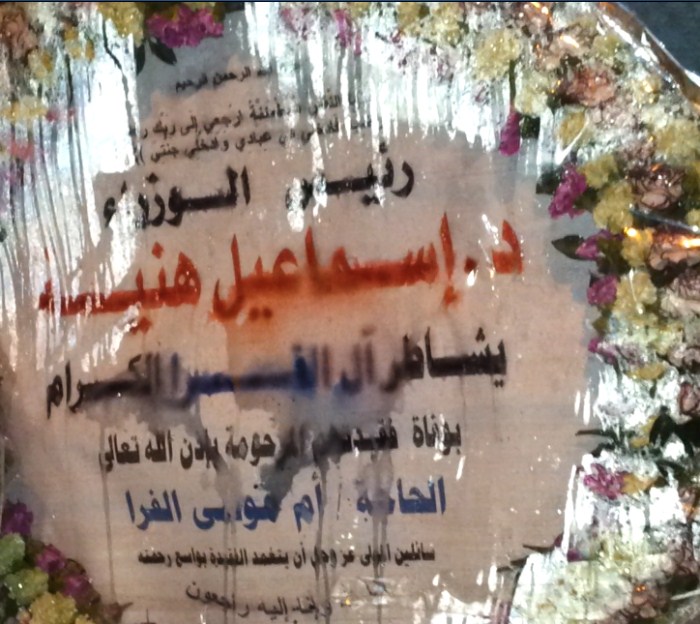 الرحمن الرحيم
ارجعي إلى ربك
في عبادي وادخلي جنتي
رئيس الوزراء
د. إسماعيل هنية
يشاطر آل الفرا الكرام
بوفاة فقيدتهم المرحومة بإذن الله تعالى
الحاجة / أم موسى الفرا
سائلين المولى عز وجل أن يتغمد الفقيدة بواسع رحمته
وإنا إليه راجعون